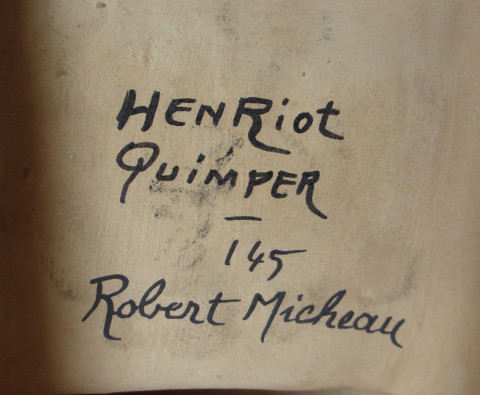 HENRiot
QuiMPER
—
145
Robert Micheau